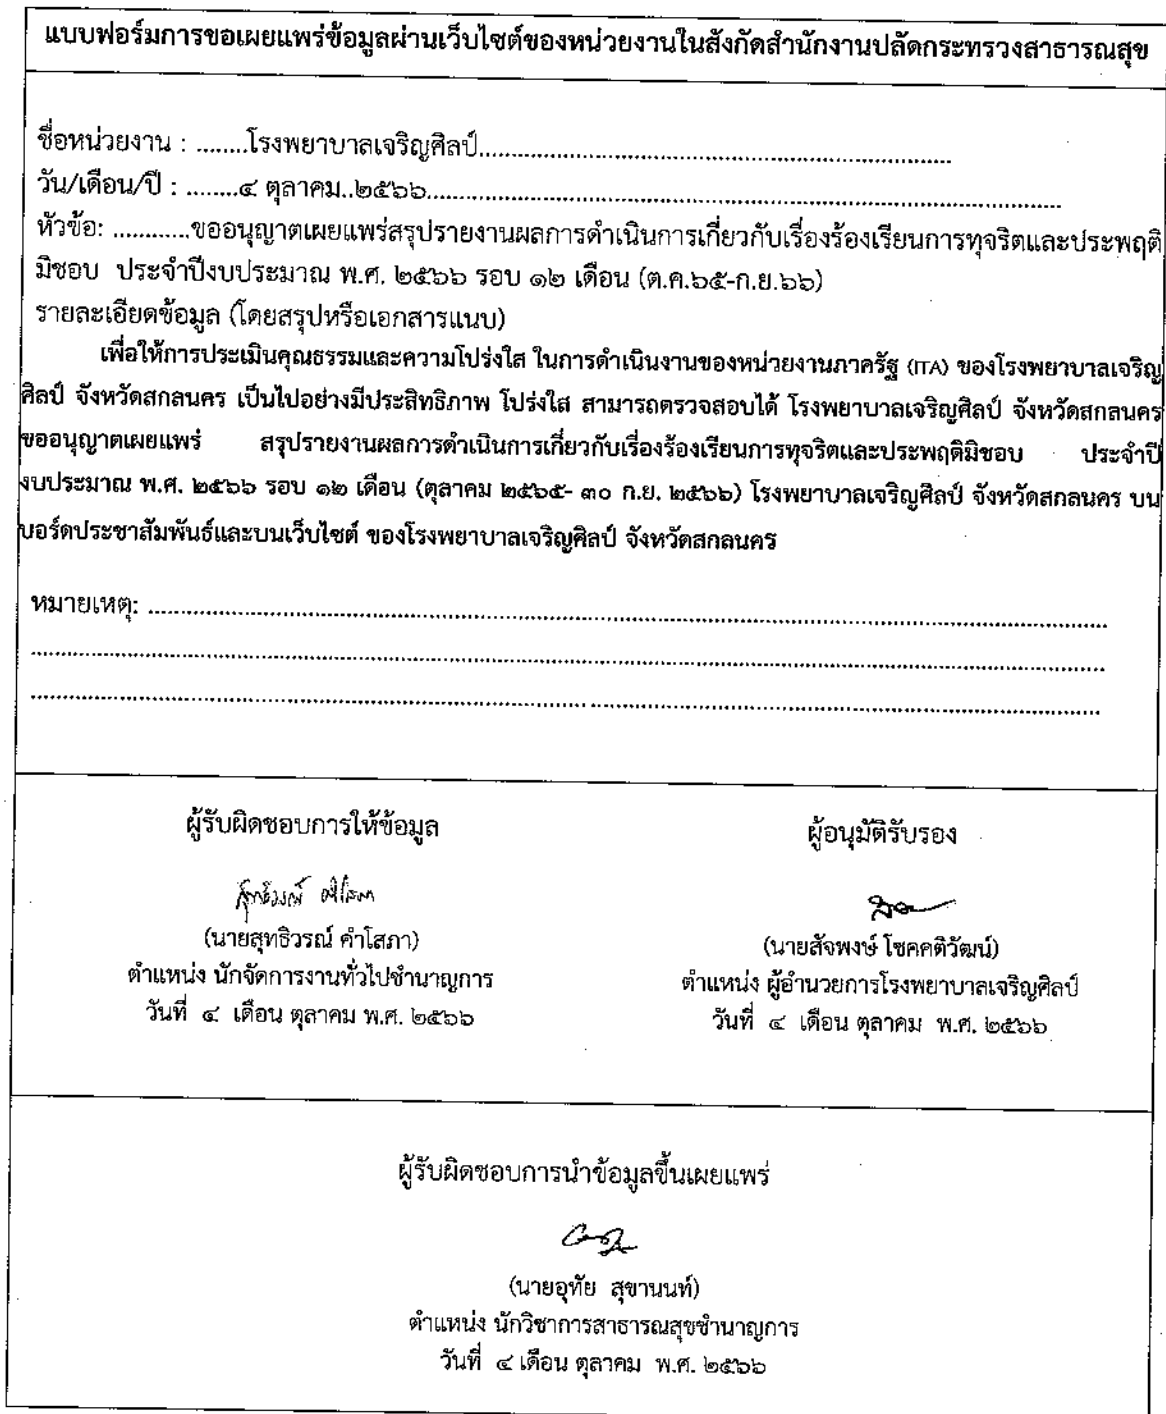 แบบฟอร์มการขอเผยแพร่ข้อมูลผ่านเว็บไซต์ของหน่วยงานในสังกัดสำนักงานปลัดกระทรวงสาธารณสุข
ชื่อหน่วยงาน : ........โรงพยาบาลเจริญศิลป์..........................................................................
วัน/เดือน/ปี : ........๔ ตุลาคม..๒๕๖๖..........................................................................
หัวข้อ: ............ขออนุญาตเผยแพร่สรุปรายงานผลการดำเนินการเกี่ยวกับเรื่องร้องเรียนการทุจริตและประพฤติ
มิชอบ ประจำปีงบประมาณ พ.ศ. ๒๕๖๖ รอบ ๑๒ เดือน (ต.ค.๖๕-ก.ย.๖๖)
รายละเอียดข้อมูล (โดยสรุปหรือเอกสารแนบ)
เพื่อให้การประเมินคุณธรรมและความโปร่งใส ในการดำเนินงานของหน่วยงานภาครัฐ (ITA) ของโรงพยาบาลเจริญ
ศิลป์ จังหวัดสกลนคร เป็นไปอย่างมีประสิทธิภาพ โปร่งใส สามารถตรวจสอบได้ โรงพยาบาลเจริญศิลป์ จังหวัดสกลนคร
ขออนุญาตเผยแพร่ สรุปรายงานผลการดำเนินการเกี่ยวกับเรื่องร้องเรียนการทุจริตและประพฤติมิชอบ ประจำปี
งบประมาณ พ.ศ. ๒๕๖๖ รอบ ๑๒ เดือน (ตุลาคม ๒๕๖๕- ๓๐ ก.ย. ๒๕๖๖) โรงพยาบาลเจริญศิลป์ จังหวัดสกลนคร บน
บอร์ดประชาสัมพันธ์และบนเว็บไซต์ ของโรงพยาบาลเจริญศิลป์ จังหวัดสกลนคร
หมายเหตุ: ..........................................................................
ผู้รับผิดชอบการให้ข้อมูล
(นายสุทธิวรณ์ คำโสภา)
ตำแหน่ง นักจัดการงานทั่วไปชำนาญการ
วันที่ ๔ เดือน ตุลาคม พ.ศ. ๒๕๖๖
ผู้อนุมัติรับรอง
(นายสัจพงษ์ โชคคติวัฒน์)
ตำแหน่ง ผู้อำนวยการโรงพยาบาลเจริญศิลป์
วันที่ ๔ เดือน ตุลาคม พ.ศ. ๒๕๖๖
ผู้รับผิดชอบการนำข้อมูลขึ้นเผยแพร่
(นายอุทัย สุขานนท์)
ตำแหน่ง นักวิชาการสาธารณสุขชำนาญการ
วันที่ ๔ เดือน ตุลาคม พ.ศ. ๒๕๖๖